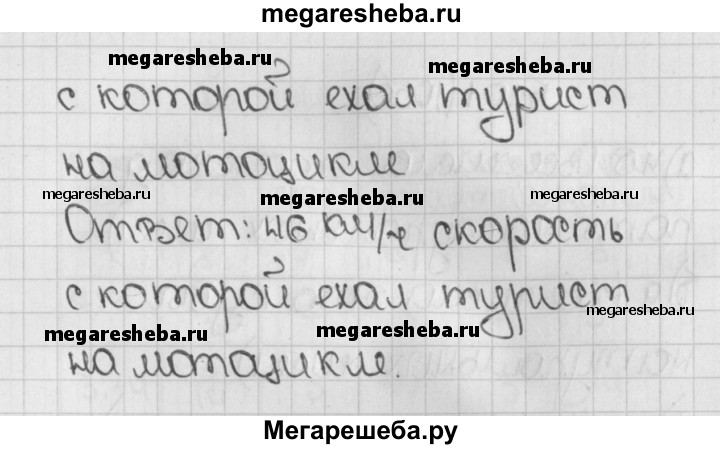 megaresheba.ru
megaresheba.ru
megaresheba.ru
с которой ехал турист
на мотоцикле
megaresheba.ru
megaresheba.ru
megaresheba.ru
Ответ: 46 км/ч скорость
с которой ехал турист
megaresheba.ru
megaresheba.ru
megaresheba.ru
на мотоцикле.
Мегарешеба.ру